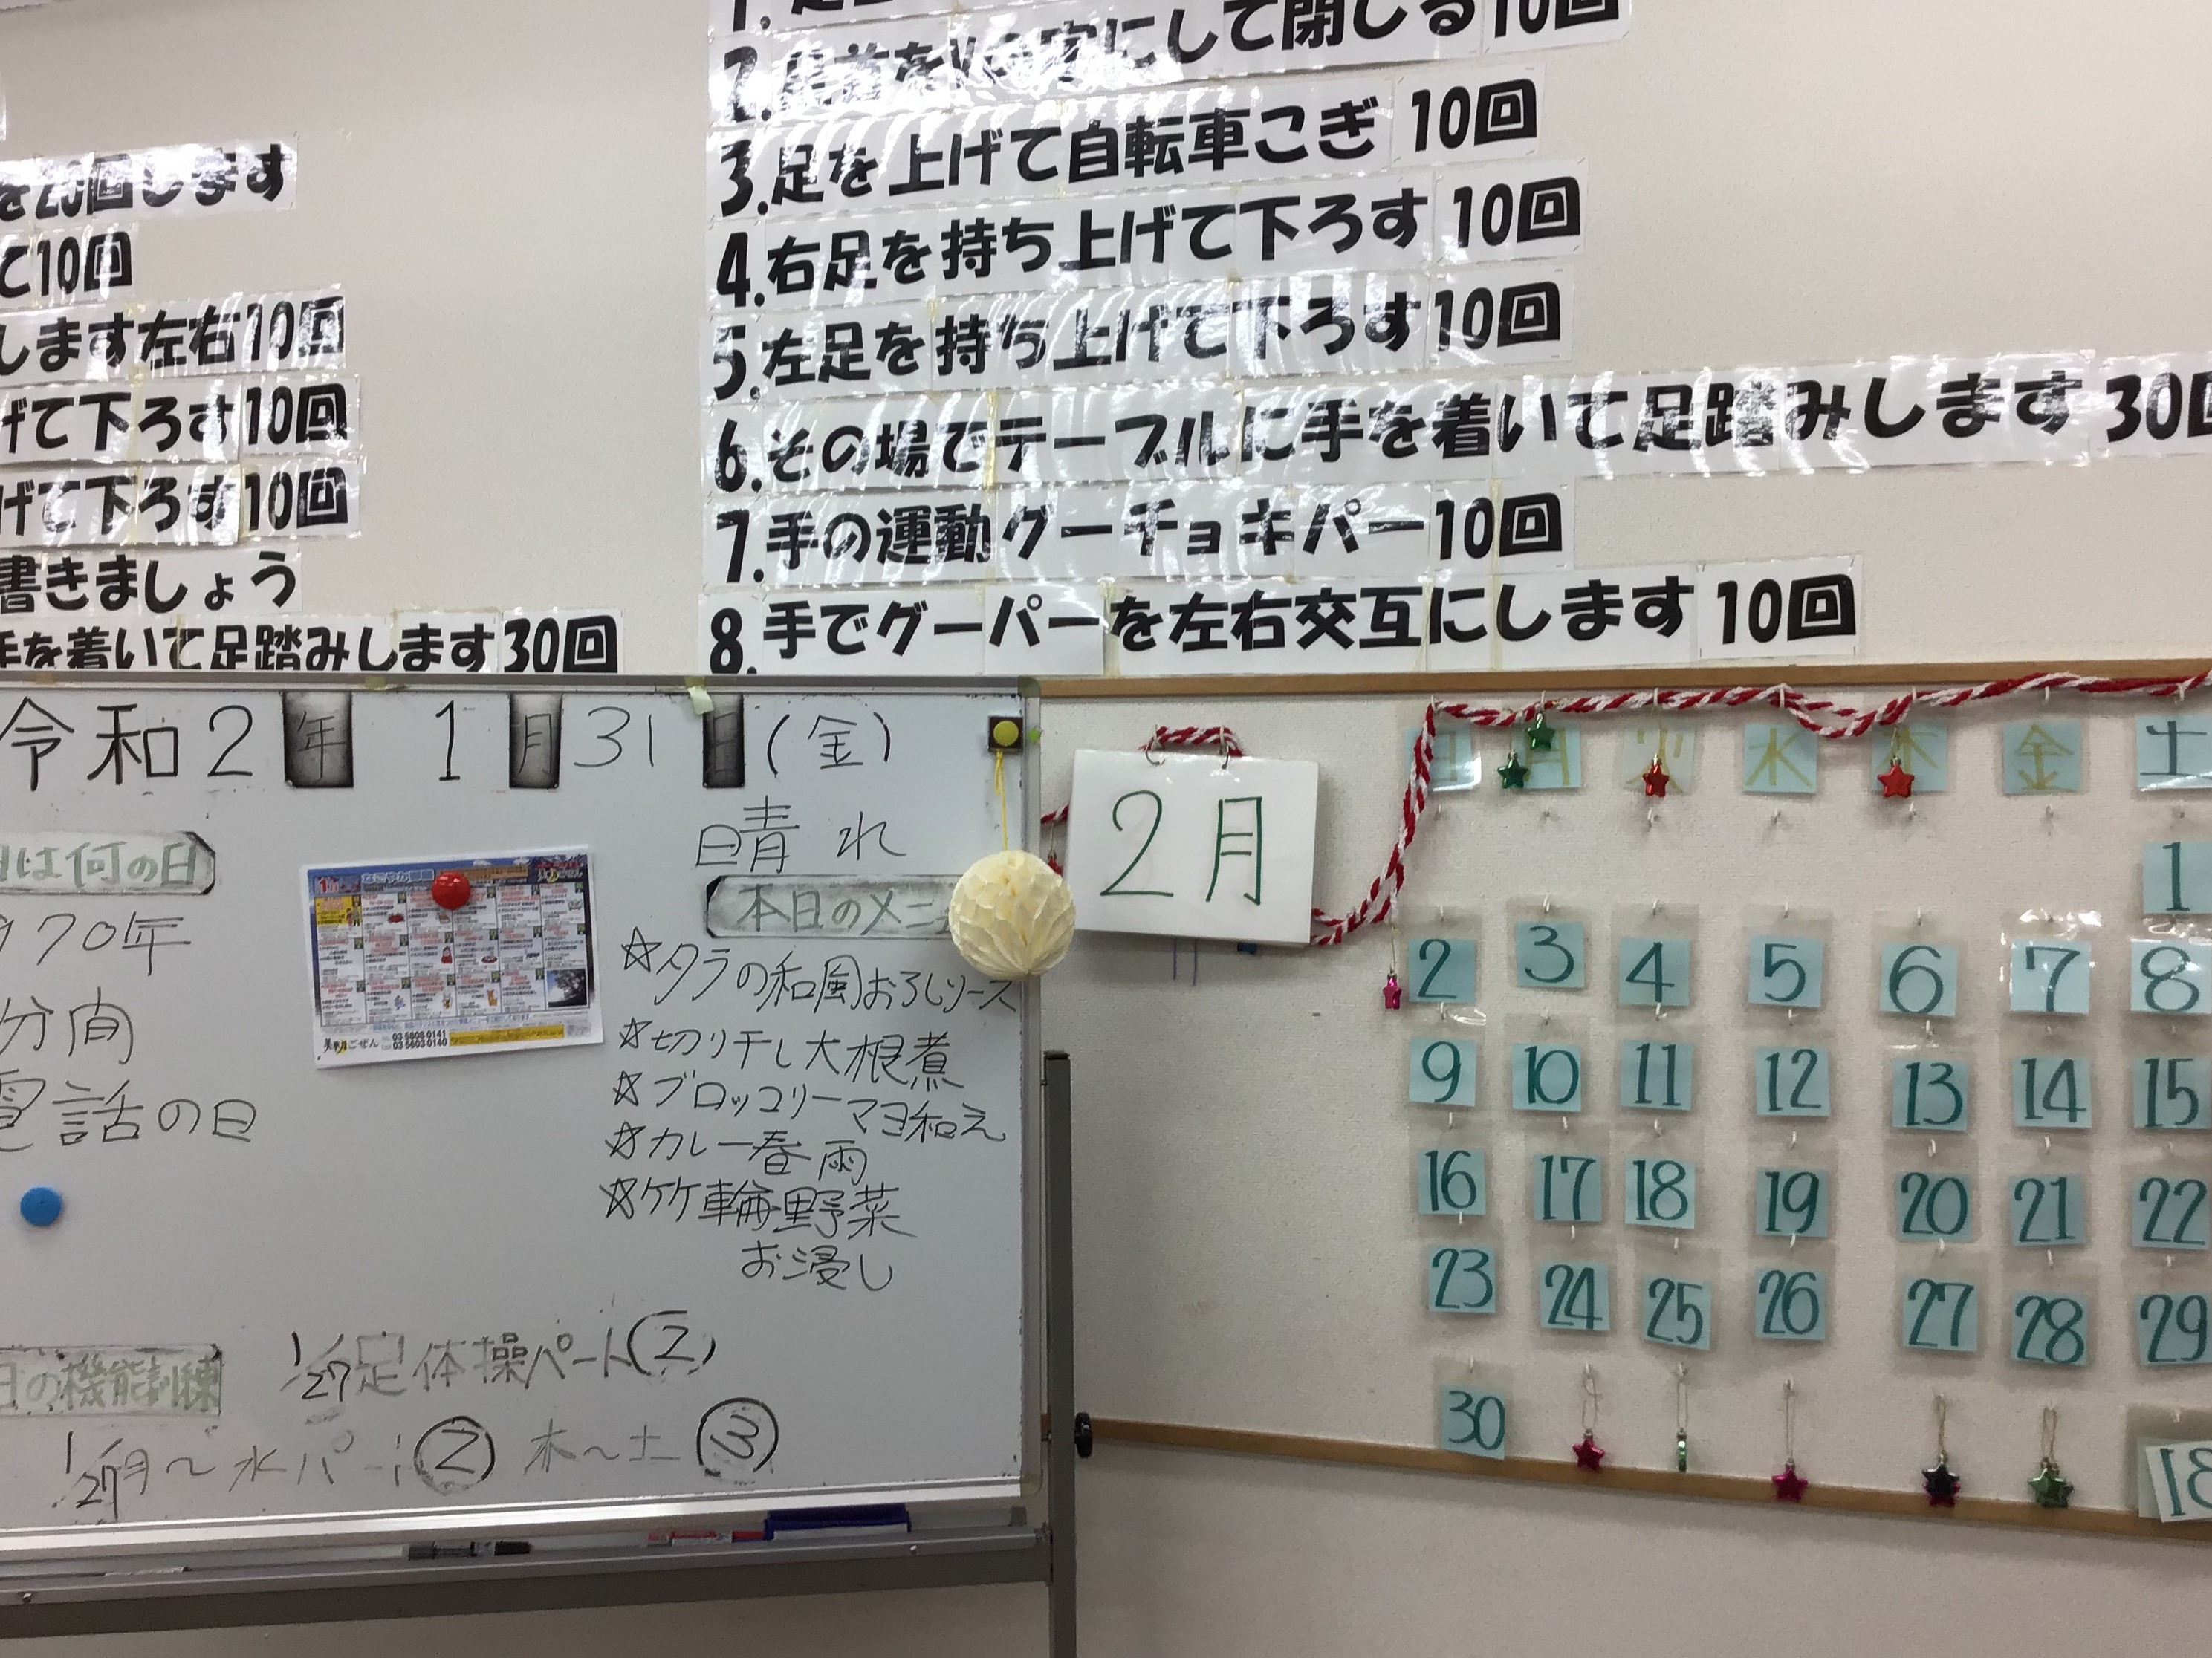 2.
にして閉じる10回
3.足を上げて自転車こぎ 10回
4.右足を持ち上げて下ろす 10回
5.左足を持ち上げて下ろす 10回
6.その場でテーブルに手を着いて足踏みします 30回
7.手の運動グーチョキパー10回
8.手でグーパーを左右交互にします 10回
を20回します
て10回
します左右10回
げて下ろす10回
げて下ろす10回
書きましょう
手を着いて足踏みします30回
令和2年 1月31日(金)
晴れ
日は何の日
970年
分間
電話の日
本日のメニ
☆タラの和風おろしソース
☆切り干し大根煮
☆ブロッコリーマヨ和え
☆カレー春雨
☆竹輪野菜
お浸し
日の機能訓練
1/27足体操パート(2)
1/27月〜水パート② 木〜土③
03 5808 0141
03 5603 0140
2月
日 月 火 水 木 金 土
1
2 3 4 5 6 7 8
9 10 11 12 13 14 15
16 17 18 19 20 21 22
23 24 25 26 27 28 29
30